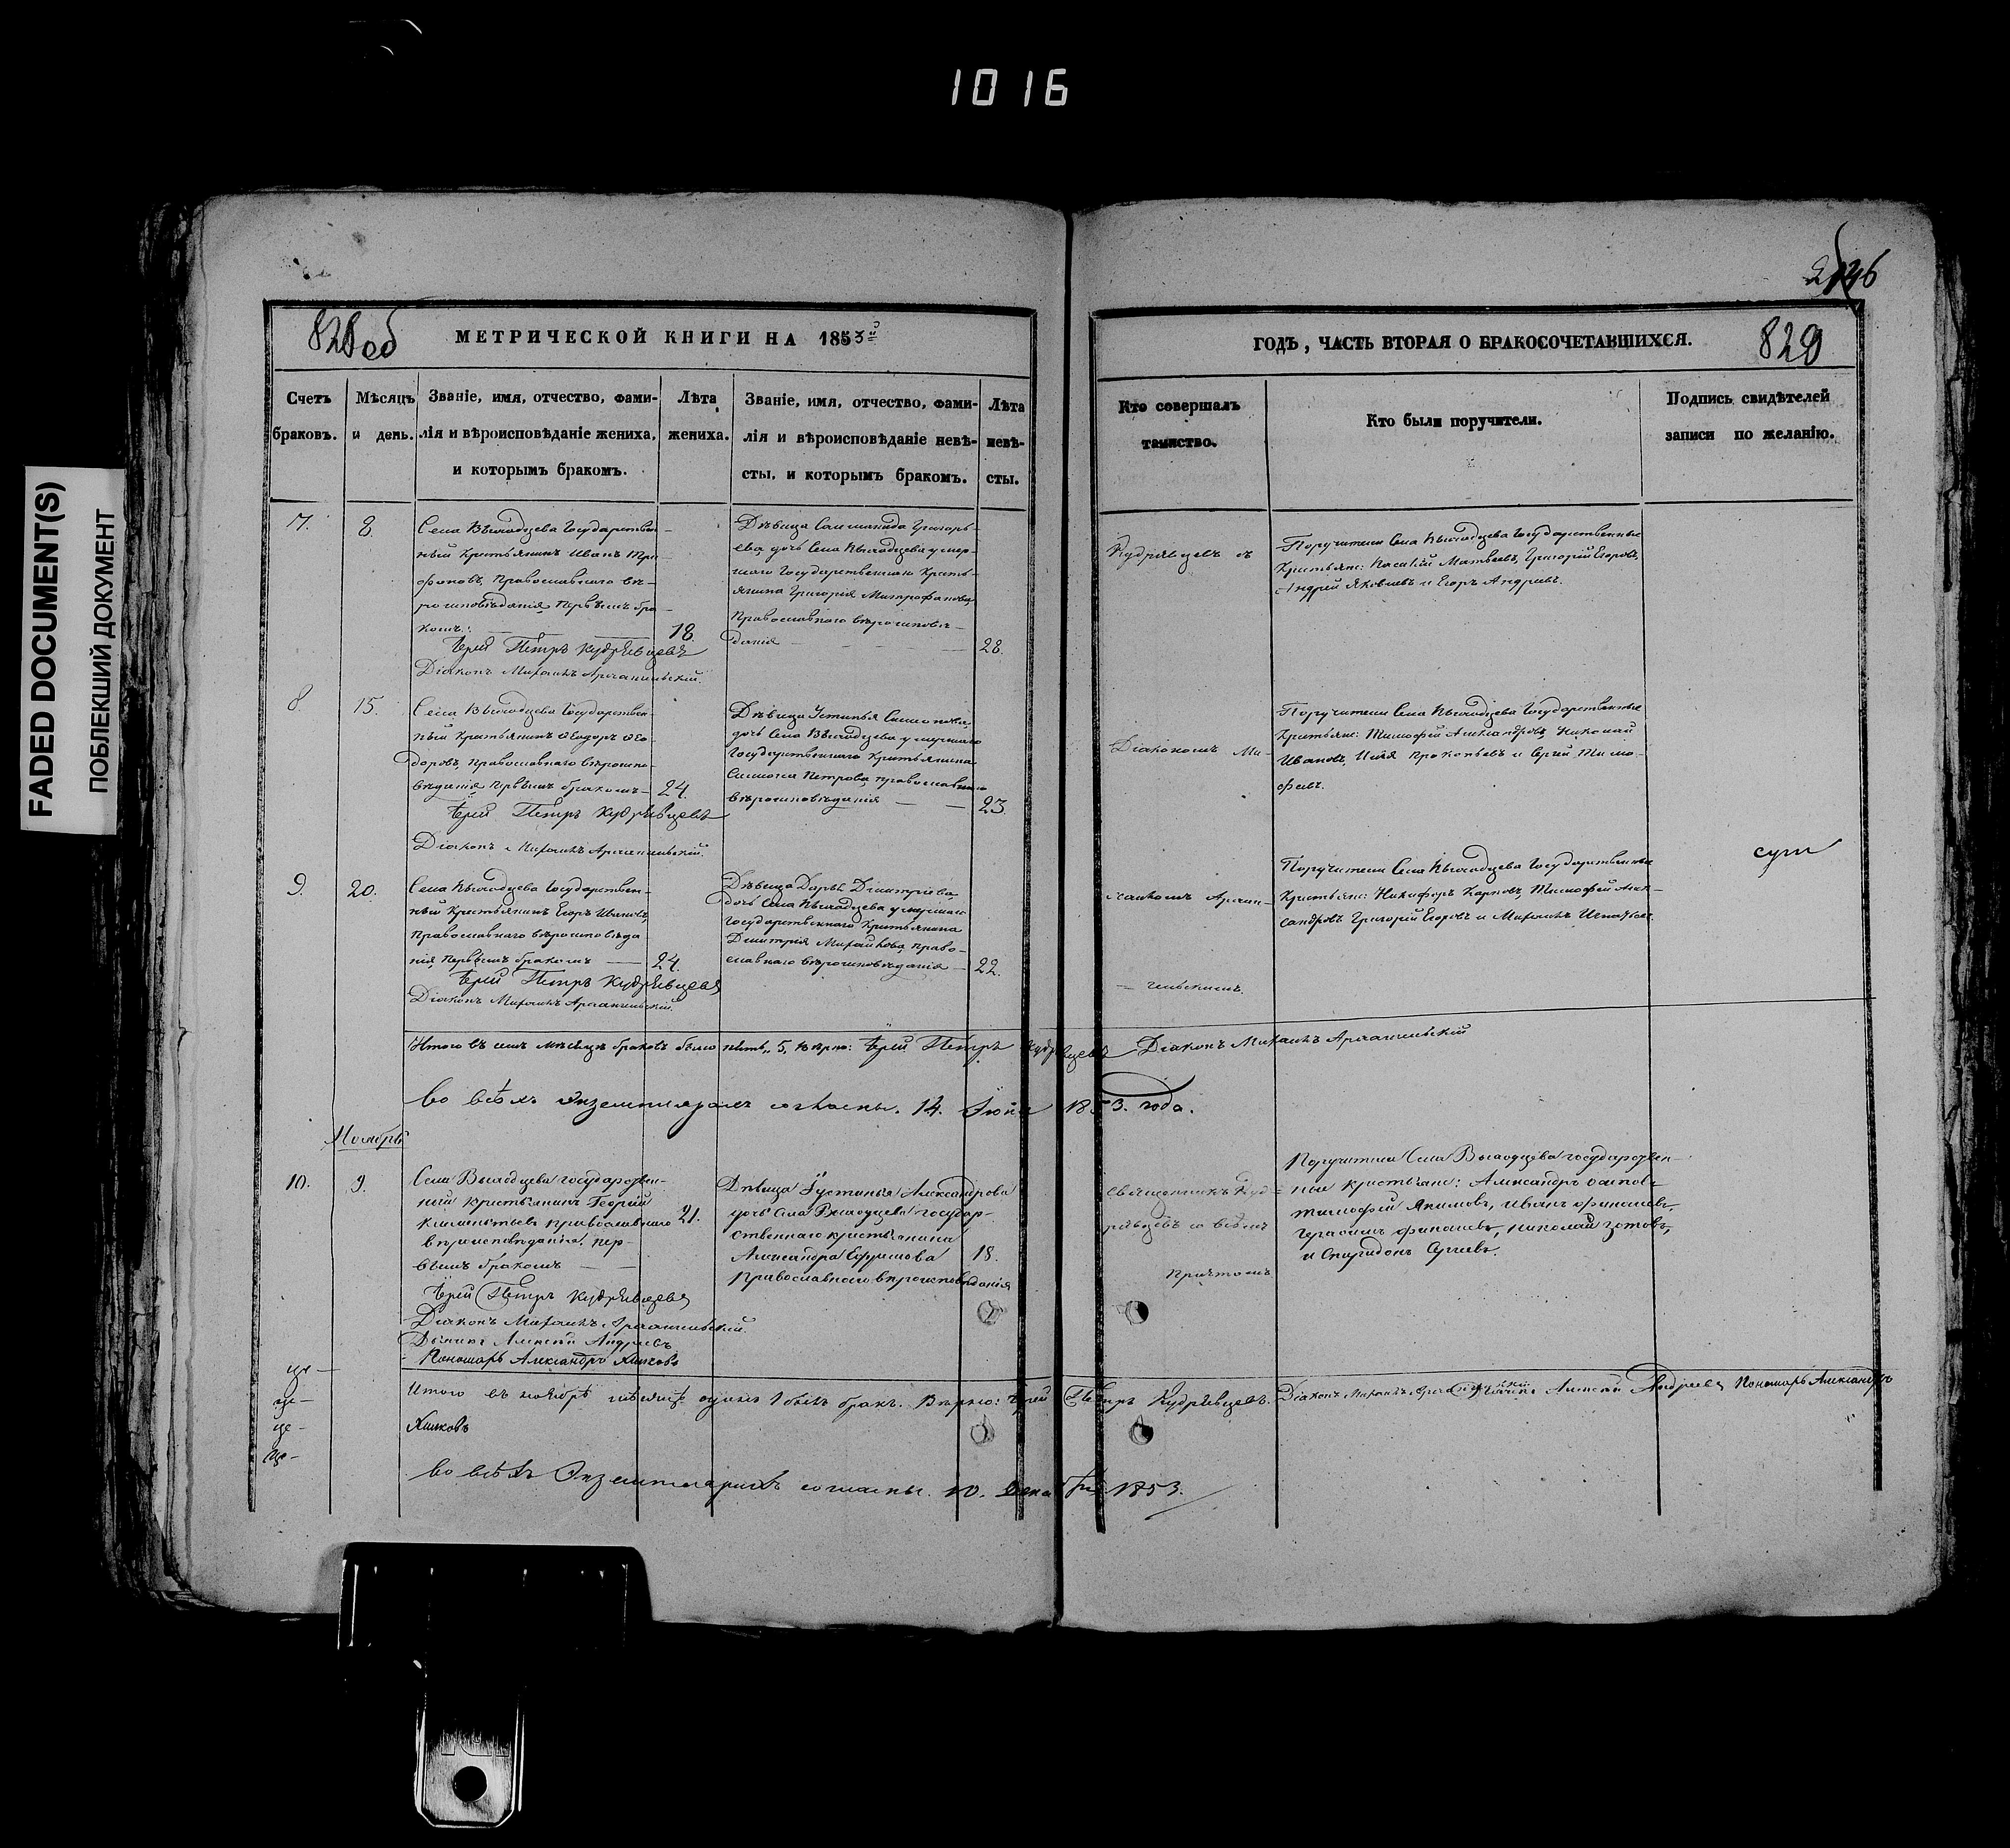 1016
FADED DOCUMENT(S)
ПОБЛЕКШИЙ ДОКУМЕНТ
828 об
МЕТРИЧЕСКОЙ КНИГИ НА 1853й
Счетъ браковъ.
Мѣсяцъ и день.
Званіе, имя, отчество, фами-
лія и вѣроисповѣданіе жениха,
и которымъ бракомъ.
Лѣта
жениха.
Званіе, имя, отчество, фами-
лія и вѣроисповѣданіе невѣ-
сты, и которымъ бракомъ.
Лѣта
невѣ-
сты.
7.
8.
Села Выходцева Государствен-
ный крестьянинъ Иванъ Три-
фоновъ, православнаго вѣ-
роисповѣданія, первымъ бра-
комъ:
18.
Іерей Петръ Кудрявцевъ
Діаконъ Михаилъ Архангельскій.
Дѣвица Соломонида Григорь-
ева дочь Села Выходцева умер-
шаго Государственнаго Кресть-
янина Григорія Митрофанова,
православнаго вѣроисповѣ-
данія
28.
8.
15.
Села Выходцева Государствен-
ный Крестьянинъ Ѳеодоръ Ѳео-
доровъ, православнаго вѣроиспо-
вѣданія первымъ бракомъ
24.
Іерей Петръ Кудрявцевъ
Діаконъ Михаилъ Архангельскій.
Дѣвица Устинья Симонова
дочь Села Выходцева умершаго
Государственнаго Крестьянина
Симона Петрова, православнаго
вѣроисповѣданія
23.
9.
20.
Села Выходцева Государствен-
ный Крестьянинъ Егоръ Ивановъ
Православнаго вѣроисповѣда
нія, первымъ бракомъ
24.
Іерей Петръ Кудрявцевъ
Діаконъ Михаилъ Архангельскій.
Дѣвица Дарья Димитріева,
дочь Села Выходцева умершаго
Государственнаго Крестьянина
Димитрія Михайлова, право-
славнаго вѣроисповѣданія
22.
Итого въ семъ мѣсяцѣ браковъ было пять,, 5, вѣрно: Іерей Петръ Кудрявцевъ Діаконъ Михаилъ Архангельскій
Во всѣхъ экземплярахъ согласны. 14. Іюня 1853. года.
Ноябрь
10.
9.
Села Выходцева государствен-
ный крестьянинъ Георгій
Климентьевъ православнаго
вѣроисповѣданія. пер-
вымъ бракомъ
21.
Іерей Петръ Кудрявцевъ
Діаконъ Михаилъ Архангельскій.
Дьячекъ Алексѣй Андреевъ
Пономарь Александръ
Дѣвица Іустинья Александрова
дочь Села Выходцева государ-
ственнаго крестьянина
Александра Ефимова
Православнаго вѣроисповѣданія
18.
Итого въ ноябрѣ мѣсяцѣ одинъ 1 былъ бракъ. Вѣрно: Іерей Петръ Кудрявцевъ. Діаконъ Михаилъ Архангельскій Дьячекъ Алексѣй Андреевъ Пономарь Александръ
Во всѣхъ Экземплярахъ согласны. 10. Декабря 1853.
ГОДЪ, ЧАСТЬ ВТОРАЯ О БРАКОСОЧЕТАВШИХСЯ.
829
Кто совершалъ
таинство.
Кто были поручители.
Подпись свидѣтелей
записи по желанію.
Кудрявцевъ съ
Поручители Села Выходцева Государственные
Крестьяне: Матвѣевъ, Григорій Егоровъ,
Андрей Яковлевъ и Егоръ Андреевъ.
Діакономъ Ми-
Поручители Села Выходцева Государственные
Крестьяне: Тимофей Александровъ, Николай
Ивановъ, Илія Прокопьевъ и Сергій Тимо-
феевъ.
хаиломъ Архан-
Поручители Села Выходцева Государственные
Крестьяне: Никифоръ Карповъ, Тимофей Алек-
сандровъ Григорій Егоровъ и Михаилъ
гельскимъ.
Священникъ Куд-
рявцевъ со всѣмъ
причтомъ
Поручители Села Выходцева государствен-
ные крестьяне: Александръ
Тимофей Акимовъ, Иванъ
Герасимъ Николай Зотовъ,
и Спиридонъ Сергеевъ.